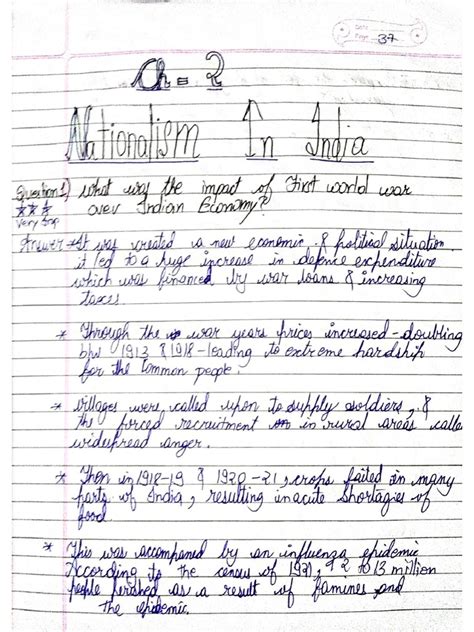 Date
Page 37
Ch = 2
Nationalism In India
Question 1) what was the impact of First world war
over Indian Economy?
Very Imp
Answer → It was created a new economic & political situation.
it led to a huge increase in defence expenditure
which was financed by war loans & increasing
taxes
* Through the war years prices increased - doubling
b/w 1913 & 1918 - leading to extreme hardship
for the common people.
* villages were called upon to supply soldiers, &
the forced recruitment in rural areas called
widespread anger.
* Then in 1918-19 & 1920-21, crops failed in many
parts of India, resulting in acute shortagies of
food
* This was accompaned by an influenza epidemic
According to the census of 1921, 12 to 13 million
people perished as a result of famines and
the epidemic.